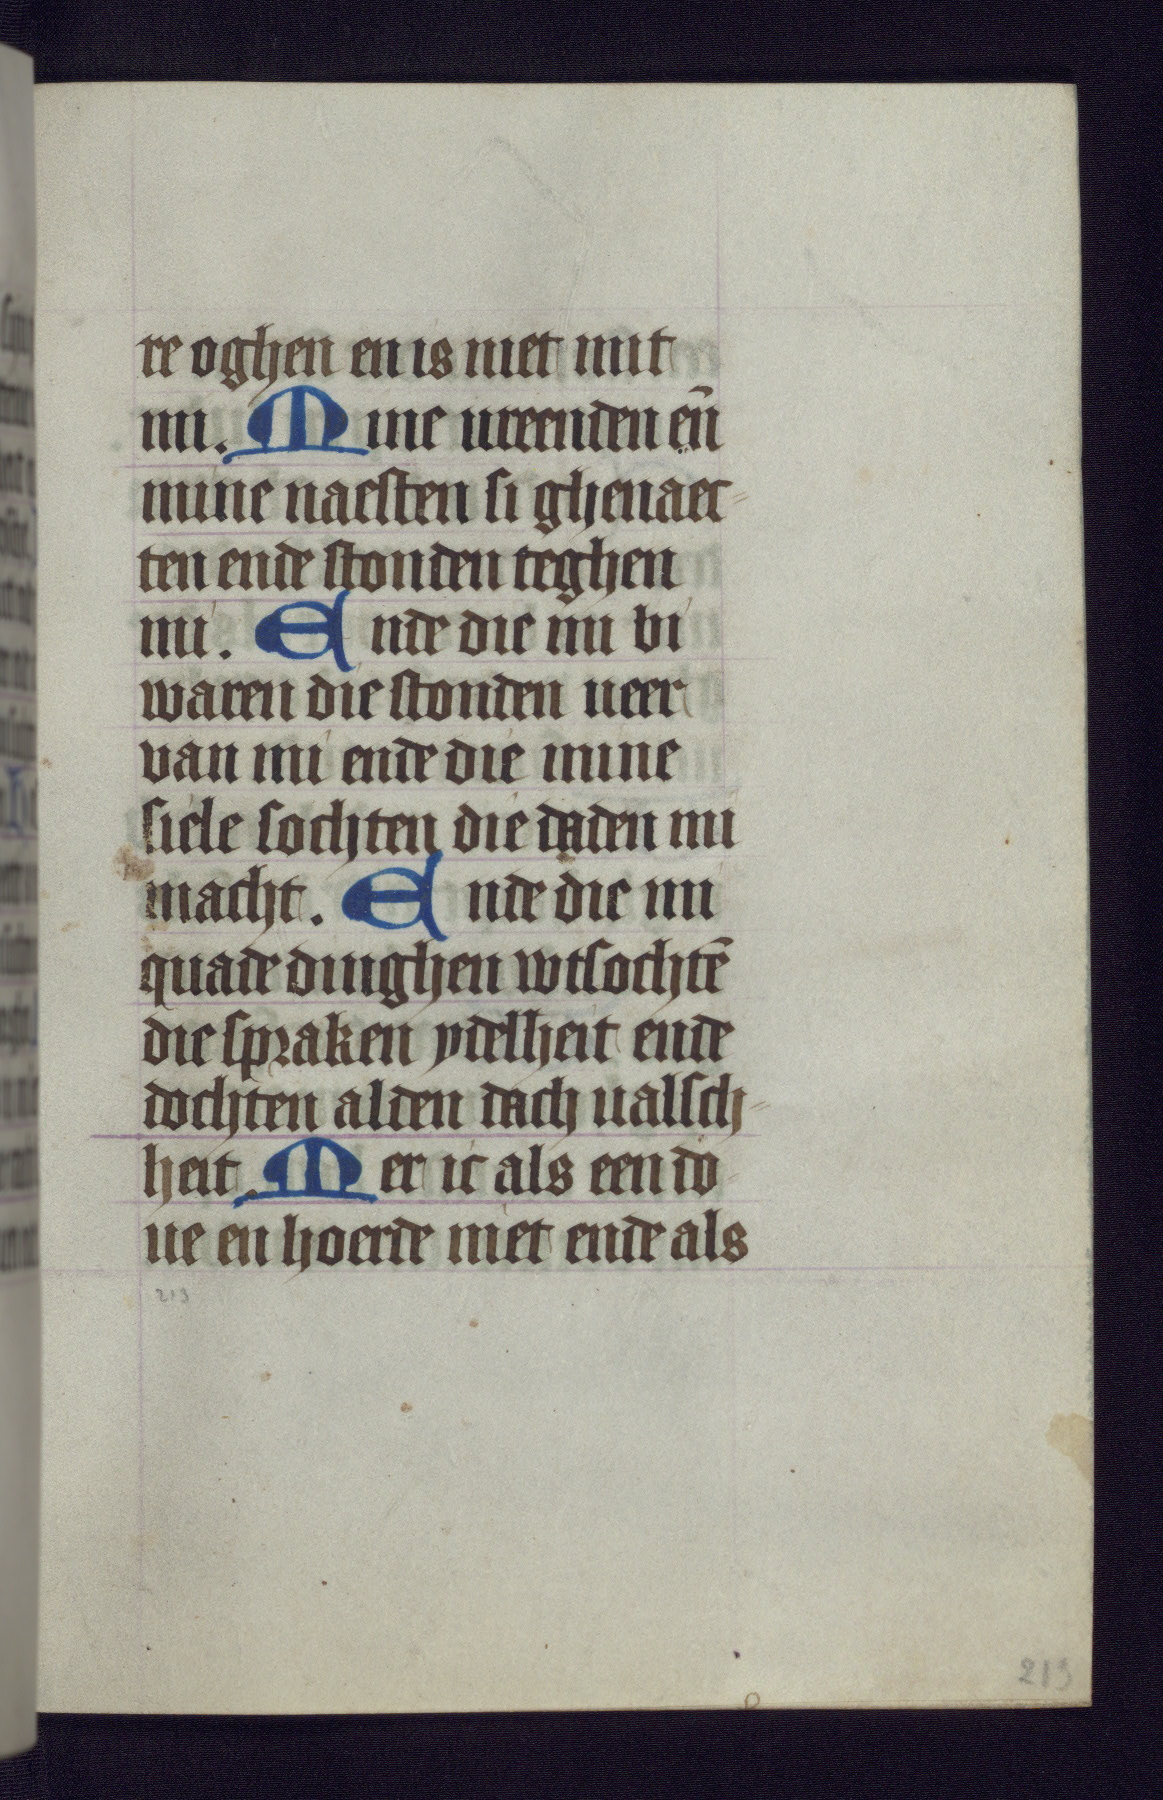 re oghen en is niet mit
mi. Mine ureenden en̄
mine naesten si ghenaec-
ten ende stonden teghen
mi. Ende die mi bi
waren die stonden ueer
van mi ende die mine
siele sochten die daden mi
macht. Ende die mi
quade dinghen wtsochtē
die spraken ydelheit ende
dochten alden dach ualsch-
heit. Mer ic als een do-
ue en hoerde niet ende als
213
213